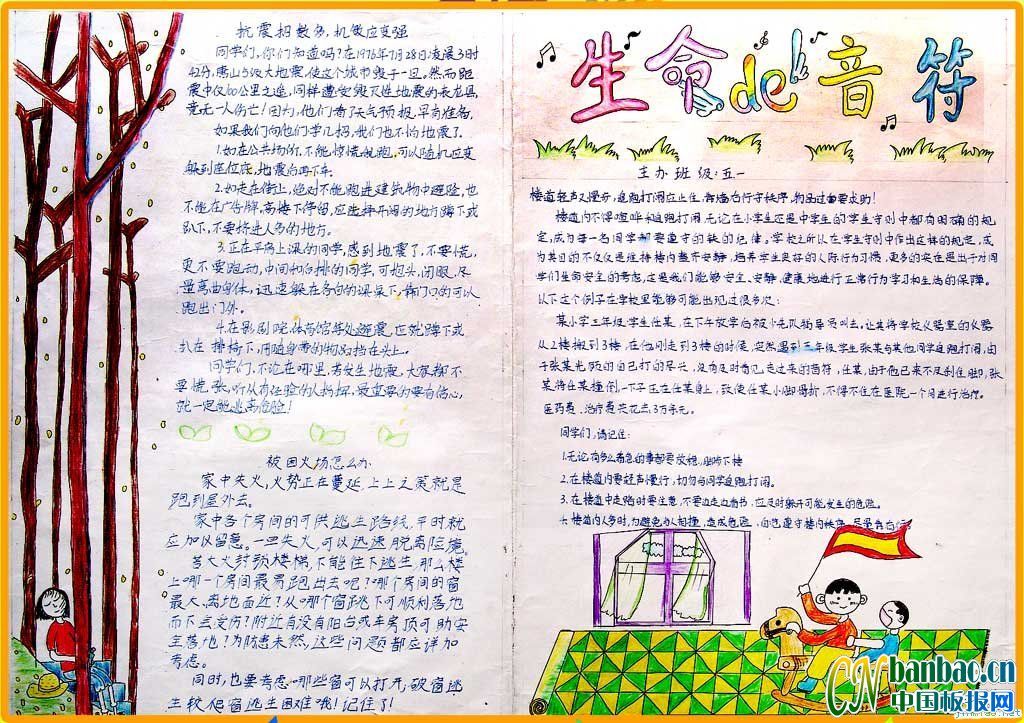 抗震招数多,机敏应变强
同学们,你们知道吗?在1976年7月28日凌晨3时
42分,唐山
大地震,使这个城市毁于一旦,然而距
震中仅100公里之遥,同样遭受毁灭性地震的
县,
竟无一人伤亡!因为,他们看了天气预报,早有准备,
如果我们向他们学几招,我们也不怕地震了。
1.如在公共场所,不能惊慌乱跑,可以随机应变
躲到座位底,地震后再下车.
2.如走在街上,绝对不能跑进建筑物中避险,也
不能在广告牌,高楼下停留,应选择开阔的地方蹲下或
趴下,不要挤进人多的地方。
3.正在平房上课的同学,感到地震了,不要慌,
更不要跑动,中间和后排的同学,可抱头,闭眼,尽
量离曲身体,迅速躲在各自的课桌下,靠门口的可以
跑出门外。
4.在影剧院,体育馆等处遇震,应就蹲下或
趴在排椅下,用随身带的物品挡在头上。
同学们,不论在哪里,若发生地震,大家都不
要慌张,听从有经验的人指挥,最重要的要有信心,
就一定能逃离危险!
被困火场怎么办
家中失火,火势正在蔓延,上上之策就是
跑到屋外去。
家中各个房间的可供逃生路线,平时就
应加以留意。一旦失火,可以迅速脱离险境。
若大火封锁楼梯,不能往下逃生,那么楼
上哪一个房间最易跑出去呢?哪个房间的窗
最大、离地面近?从哪个窗跳下可顺利落地
而不会受伤?附近有没有阳台或车房顶可助安
全落地?为防患未然,这些问题都应详加
考虑。
同时,也要考虑哪些窗可以打开,破窗逃
生较爬窗逃生困难哦!记住了!
生命de音符
主办班级:五一
楼道轻声又慢行,追跑打闹应止住,靠墙右行守秩序,物品过重要求助!
楼道内不得喧哗和追跑打闹,无论在小学生还是中学生的学生守则中都有明确的规
定,成为每一名同学都要遵守的铁的纪律。学校之所以在学生守则中作出这样的规定,成
为其目的不仅仅是维持楼内整齐安静,培养学生良好的人际行为习惯,更多的实在是出于对同
学们生命安全的考虑,这是我们能够安全、安静、健康地进行正常行为学习和生活的保障。
以下这个例子在学校里能够可能出现过很多次:
某小学三年级学生任某,在下午放学后被少先队辅导员叫去。让其将学校仪器室的仪器
从2楼搬到3楼,在他刚走到3楼的时候,突然遇到三年级学生张某与其他同学追跑打闹,由
于张某光顾的自己打的尽兴,没有及时看见走过来的符,任某,由于他已来不及刹住脚,张
某将任某撞倒,一下子压在任某身上,致使任某小脚骨折,不得不住在医院一个月进行治疗。
医药费、治疗费共花去3万多元。
同学们,请记住:
1.无论有多么着急的事都要放稳,脚踏下楼
2.在楼道内要轻声慢行,切勿与同学追跑打闹。
3.在楼道中走路时要注意,不要边走边看书,应及时躲开可能发生的危险。
4.楼道内人多时,勿避免与人相撞,造成危险,自觉遵守楼内秩序,尽量靠右行
CN banbao.cn
中国板报网